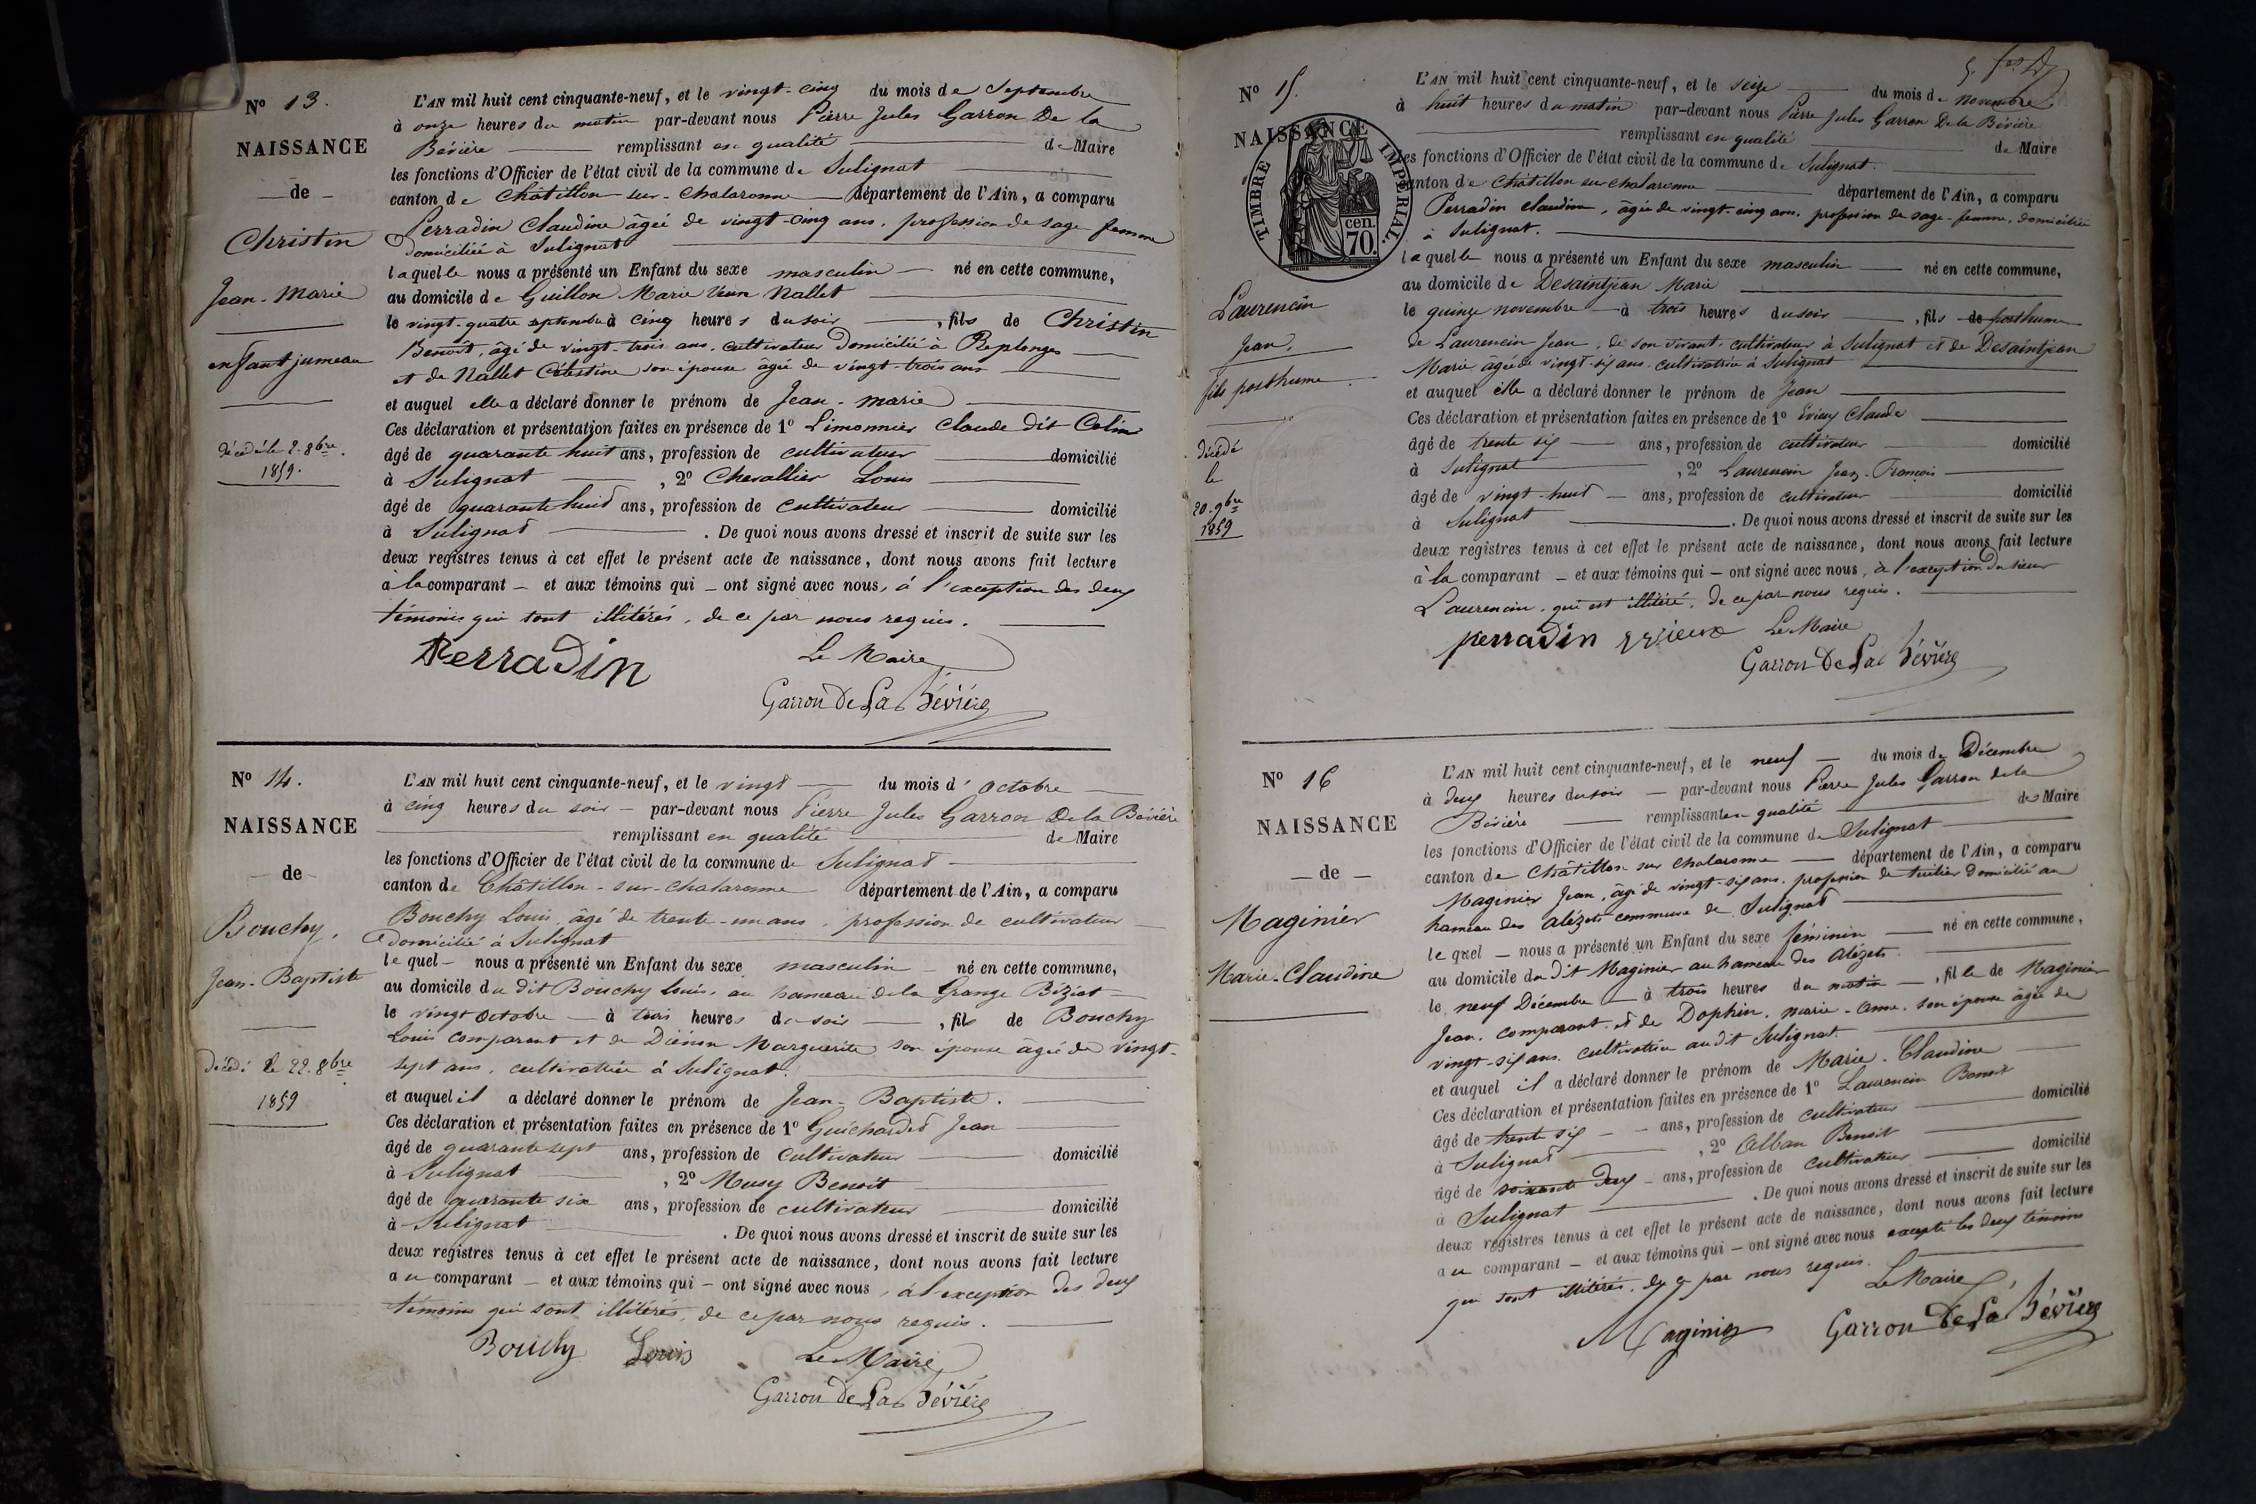 Nº 13.
NAISSANCE
de
Christin
Jean-Marie
enfant jumeau
décédé le 2. 8bre.
1859.
L'AN mil huit cent cinquante-neuf, et le vingt-cinq du mois de Septembre
à onze heures du matin par-devant nous Pierre Jules Garron De la
Bévière remplissant en qualité de Maire
les fonctions d'Officier de l'état civil de la commune de Sulignat
canton de Châtillon-sur-Chalaronne département de l'Ain, a comparu
Perradin Claudine âgée de vingt-cinq ans, profession de sage femme
domiciliée à Sulignat
laquelle nous a présenté un Enfant du sexe masculin né en cette commune,
au domicile de Guillon Marie Nallet
le vingt-quatre septembre à cinq heures du soir, fils de Christin
Benoît, âgé de vingt-trois ans, cultivateur domicilié à Replonges
et de Nallet Célestine son épouse âgée de vingt-trois ans
et auquel elle a déclaré donner le prénom de Jean-Marie
Ces déclaration et présentation faites en présence de 1º Limonnier Claude dit Colin
âgé de quarante huit ans, profession de cultivateur domicilié
à Sulignat, 2º Chevallier Louis
âgé de quarante huit ans, profession de cultivateur domicilié
à Sulignat. De quoi nous avons dressé et inscrit de suite sur les
deux registres tenus à cet effet le présent acte de naissance, dont nous avons fait lecture
à la comparant et aux témoins qui ont signé avec nous, à l'exception des deux
témoins qui sont illitérés, de ce par nous requis.
Perradin
Le Maire
Garron De La Bévière
Nº 14.
NAISSANCE
de
Bouchy,
Jean-Baptiste
décédé le 22. 8bre.
1859
L'AN mil huit cent cinquante-neuf, et le vingt du mois d'octobre
à cinq heures du soir par-devant nous Pierre Jules Garron De la Bévière
remplissant en qualité de Maire
les fonctions d'Officier de l'état civil de la commune de Sulignat
canton de Châtillon-sur-Chalaronne département de l'Ain, a comparu
Bouchy Louis, âgé de trente-un ans, profession de cultivateur
domicilié à Sulignat
lequel nous a présenté un Enfant du sexe masculin né en cette commune,
au domicile du dit Bouchy Louis, au hameau de la Grange Béziat
le vingt octobre à trois heures du soir, fils de Bouchy
Louis comparant et de Marguerite son épouse âgée de vingt-
sept ans, cultivatrice à Sulignat.
et auquel il a déclaré donner le prénom de Jean-Baptiste.
Ces déclaration et présentation faites en présence de 1º Guichardet Jean
âgé de quarante sept ans, profession de cultivateur domicilié
à Sulignat, 2º Musy Benoit
âgé de quarante six ans, profession de cultivateur domicilié
à Sulignat. De quoi nous avons dressé et inscrit de suite sur les
deux registres tenus à cet effet le présent acte de naissance, dont nous avons fait lecture
au comparant et aux témoins qui ont signé avec nous, à l'exception des deux
témoins qui sont illitérés, de ce par nous requis.
Bouchy Louis
Le Maire
Garron De La Bévière
Nº 15.
NAISSANCE
TIMBRE IMPÉRIAL.
70 cen.
Laurencin
Jean,
fils posthume.
décédé
le
20. 9bre
1859
L'AN mil huit cent cinquante-neuf, et le seize du mois de novembre
à huit heures du matin par-devant nous Pierre Jules Garron De la Bévière
remplissant en qualité de Maire
les fonctions d'Officier de l'état civil de la commune de Sulignat.
canton de Châtillon sur Chalaronne département de l'Ain, a comparu
Perradin Claudine, âgée de vingt-cinq ans, profession de sage-femme, domiciliée
à Sulignat.
laquelle nous a présenté un Enfant du sexe masculin né en cette commune,
au domicile de Desaintjean Marie
le quinze novembre à trois heures du soir, fils de posthume
de Laurencin Jean, de son vivant cultivateur à Sulignat et de Desaintjean
Marie âgée de vingt-six ans, cultivatrice à Sulignat
et auquel elle a déclaré donner le prénom de Jean
Ces déclaration et présentation faites en présence de 1º Evieux Claude
âgé de trente six ans, profession de cultivateur domicilié
à Sulignat, 2º Laurencin Jean-François
âgé de vingt-huit ans, profession de cultivateur domicilié
à Sulignat. De quoi nous avons dressé et inscrit de suite sur les
deux registres tenus à cet effet le présent acte de naissance, dont nous avons fait lecture
à la comparant et aux témoins qui ont signé avec nous, à l'exception du sieur
Laurencin, qui est illitéré, de ce par nous requis.
perradin Evieux Le Maire
Garron De La Bévière
Nº 16
NAISSANCE
de
Maginier
Marie-Claudine
L'AN mil huit cent cinquante-neuf, et le neuf du mois de Décembre
à deux heures du soir par-devant nous Pierre Jules Garron de la
Bévière remplissant en qualité de Maire
les fonctions d'Officier de l'état civil de la commune de Sulignat
canton de Châtillon sur Chalaronne département de l'Ain, a comparu
Maginier Jean, âgé de vingt-six ans, profession de tuilier domicilié au
hameau des Alézets commune de Sulignat
lequel nous a présenté un Enfant du sexe féminin né en cette commune,
au domicile du dit Maginier au hameau des Alézets.
le neuf Décembre à trois heures du matin, fille de Maginier
Jean, comparant et de Dophin, Marie-Anne, son épouse âgée de
vingt-six ans cultivatrice audit Sulignat.
et auquel il a déclaré donner le prénom de Marie-Claudine
Ces déclaration et présentation faites en présence de 1º Laurencin Benoit
âgé de trente six ans, profession de cultivateur domicilié
à Sulignat, 2º Alban Benoit
âgé de soixante deux ans, profession de cultivateur domicilié
à Sulignat. De quoi nous avons dressé et inscrit de suite sur les
deux registres tenus à cet effet le présent acte de naissance, dont nous avons fait lecture
au comparant et aux témoins qui ont signé avec nous excepté les deux témoins
qui sont illitérés, de ce par nous requis.
Le Maire
Maginier Garron De La Bévière